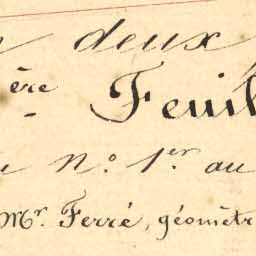 n deux
ère Feuil
n.° 1.er au
Mr. Ferré, géomètr